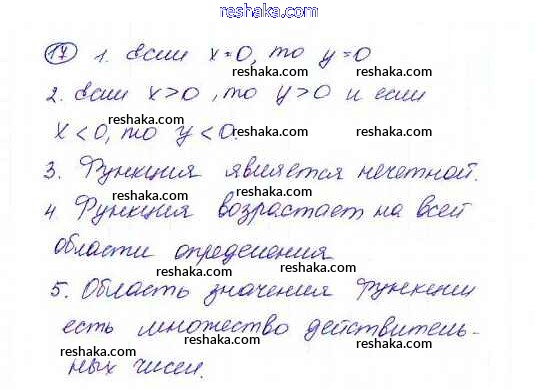 reshaka.com
17 1. Если x=0, то y=0
reshaka.com reshaka.com
2. Если x>0, то y>0 и если
reshaka.com
x<0, то y<0.
reshaka.com reshaka.com
3. Функция является нечетной.
reshaka.com reshaka.com
4. Функция возрастает на всей
reshaka.com reshaka.com
области определения
reshaka.com reshaka.com
5. Область значения функции
reshaka.com reshaka.com
есть множество действитель-
reshaka.com reshaka.com
ных чисел.
reshaka.com reshaka.com